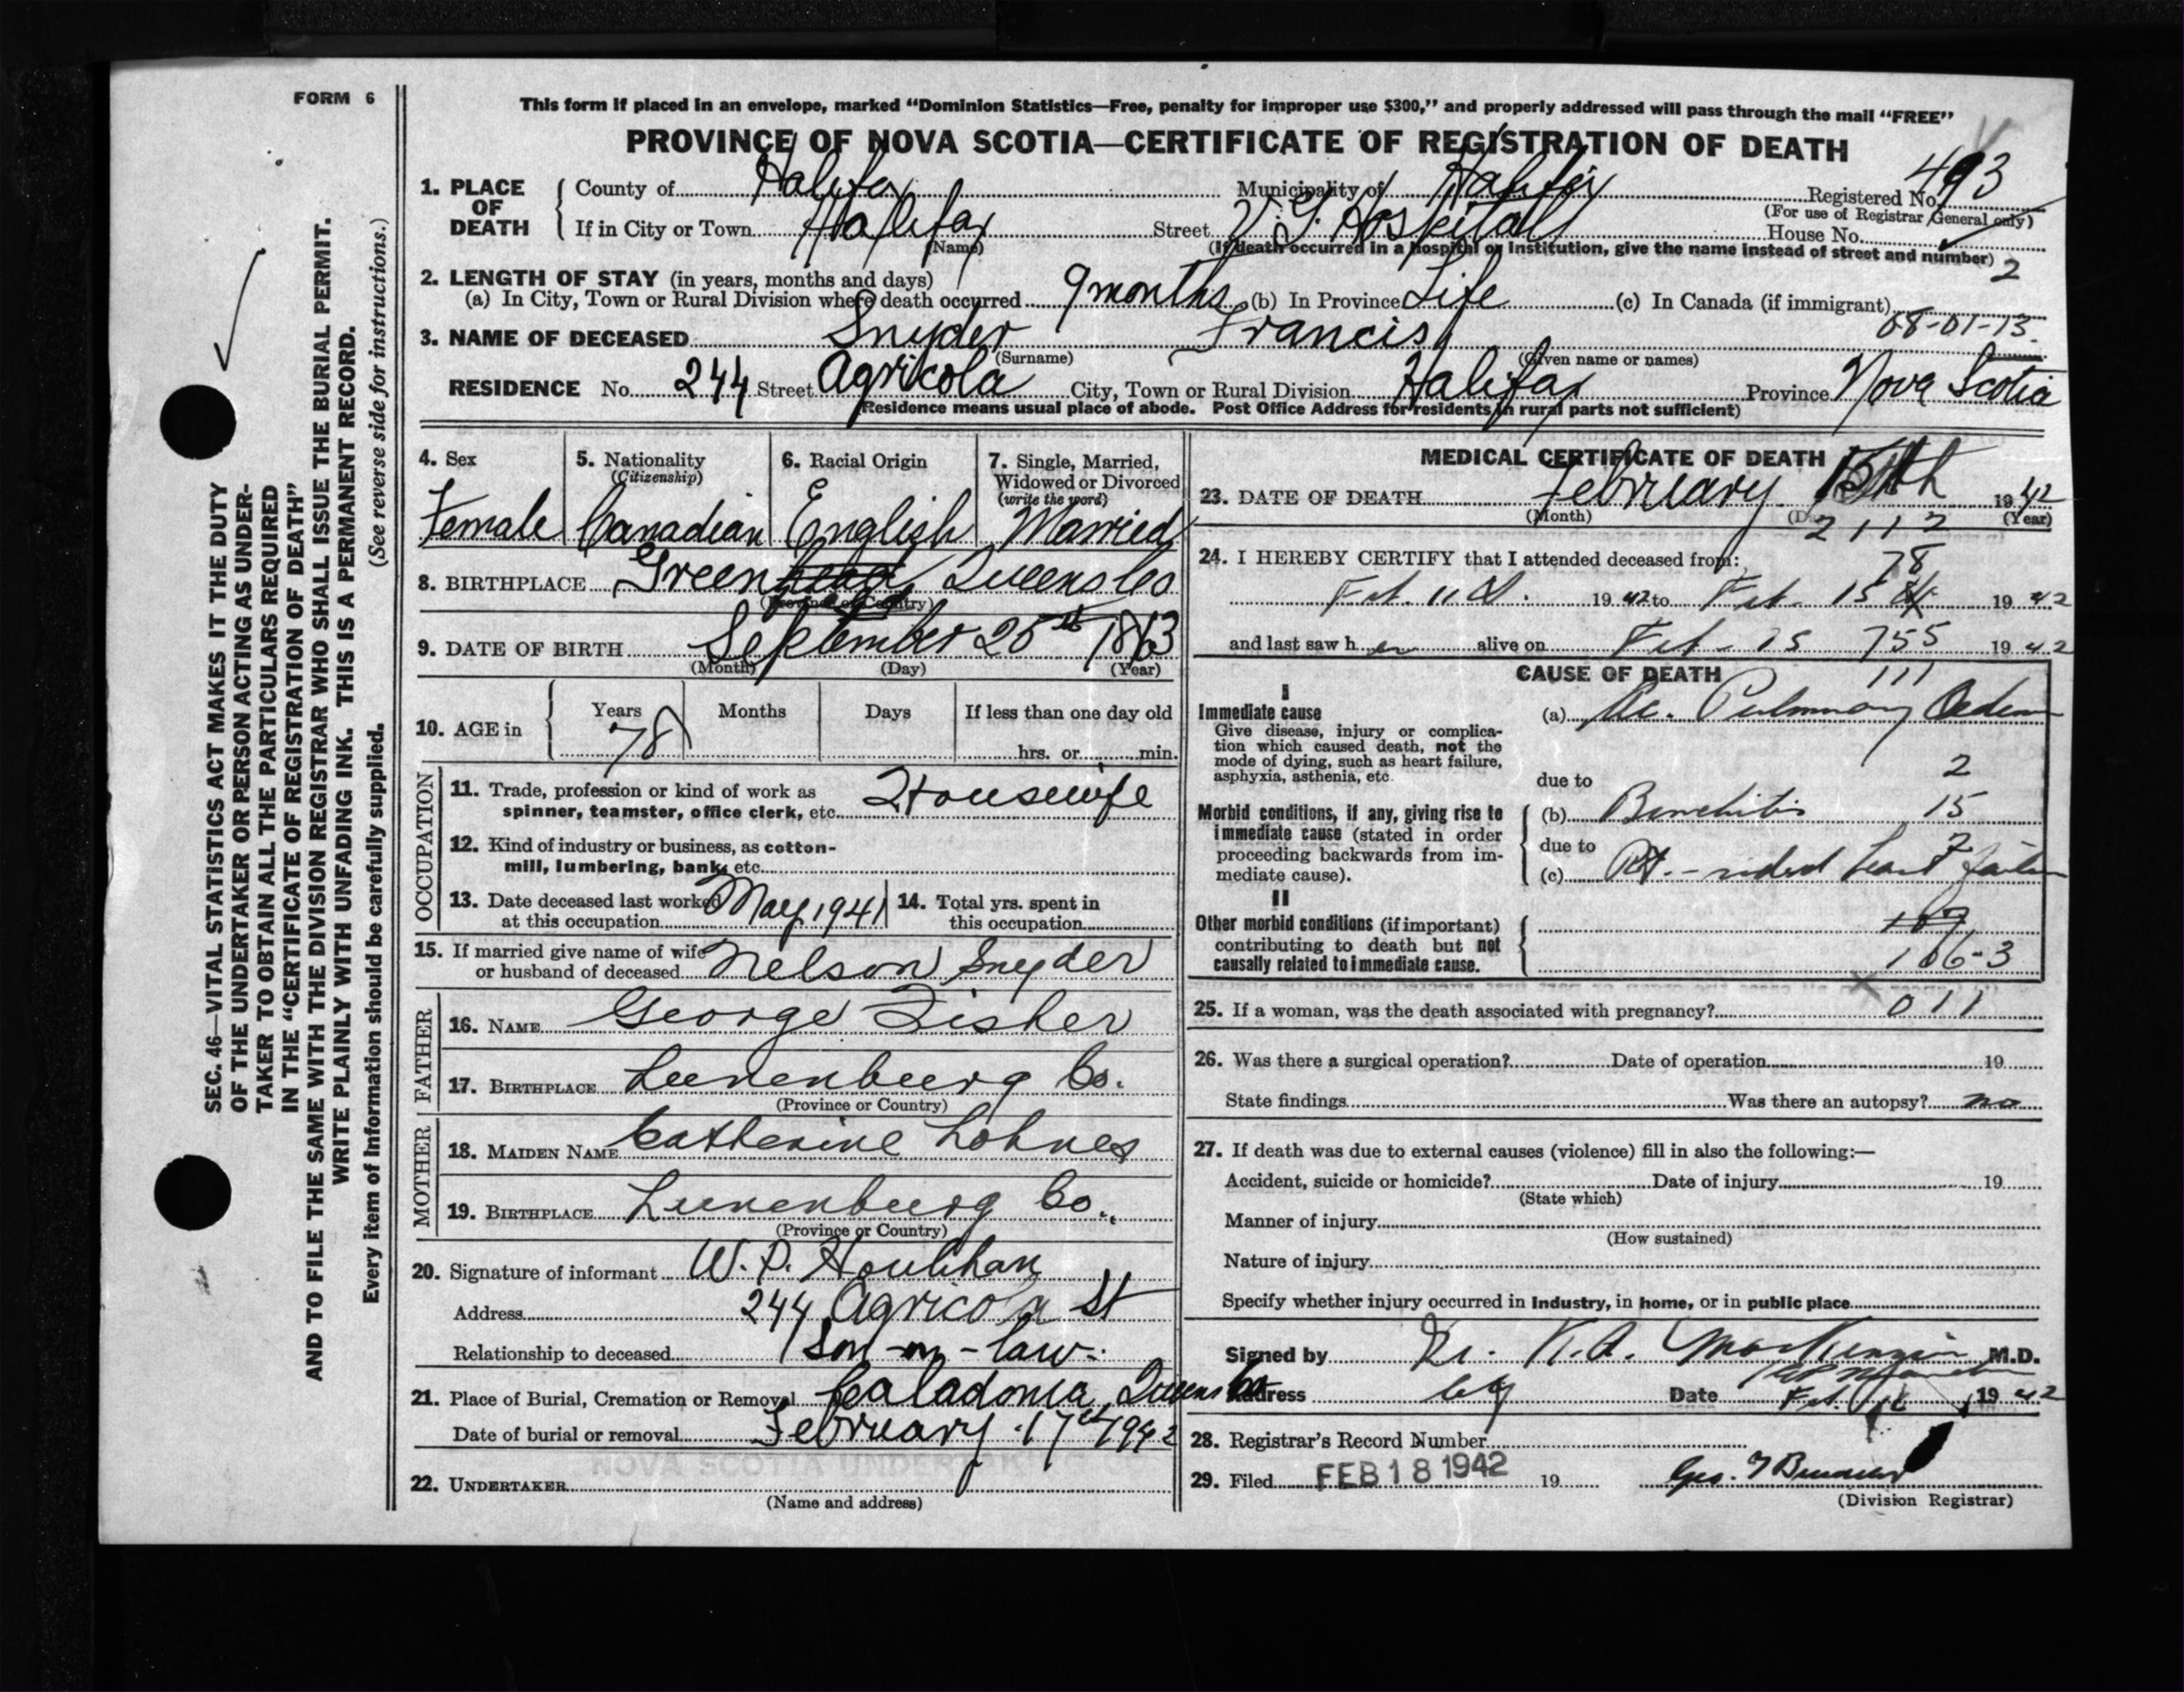 FORM 6
This form if placed in an envelope, marked “Dominion Statistics—Free, penalty for improper use $300,” and properly addressed will pass through the mail “FREE”
PROVINCE OF NOVA SCOTIA—CERTIFICATE OF REGISTRATION OF DEATH
1. PLACE OF DEATH County of Halifax Municipality of Halifax Registered No. 493
(For use of Registrar General only)
If in City or Town Halifax Street V. G. Hospital House No.
(Name) (If death occurred in a hospital or Institution, give the name instead of street and number) 2
2. LENGTH OF STAY (in years, months and days)
(a) In City, Town or Rural Division where death occurred 9 months (b) In Province Life (c) In Canada (if immigrant)
68-01-13.
3. NAME OF DECEASED Snyder Francis
(Surname) (Given name or names)
RESIDENCE No. 244 Street Agricola City, Town or Rural Division Halifax Province Nova Scotia
(Residence means usual place of abode. Post Office Address for residents in rural parts not sufficient)
4. Sex
Female
5. Nationality
(Citizenship)
Canadian
6. Racial Origin
English
7. Single, Married, Widowed or Divorced
(write the word)
Married
8. BIRTHPLACE Green Queens Co
(Province or Country)
9. DATE OF BIRTH September 25th 1863
(Month) (Day) (Year)
10. AGE in Years Months Days If less than one day old
78 hrs. or min.
OCCUPATION
11. Trade, profession or kind of work as
spinner, teamster, office clerk, etc. Housewife
12. Kind of industry or business, as cotton-
mill, lumbering, bank, etc.
13. Date deceased last worked at this occupation May, 1941
14. Total yrs. spent in this occupation
15. If married give name of wife
or husband of deceased Nelson Snyder
FATHER
16. NAME George Fisher
17. BIRTHPLACE Lunenburg Co.
(Province or Country)
MOTHER
18. MAIDEN NAME Catherine Lohnes
19. BIRTHPLACE Lunenburg Co.
(Province or Country)
20. Signature of informant W. P. Houlihan
Address 244 Agricola St
Relationship to deceased Son-in-law.
21. Place of Burial, Cremation or Removal Caladonia, Queens Co
Date of burial or removal February 17th 1942
NOVA SCOTIA UNDERTAKING
22. UNDERTAKER
(Name and address)
MEDICAL CERTIFICATE OF DEATH
23. DATE OF DEATH February 15th 1942
(Month) (Year)
2112
24. I HEREBY CERTIFY that I attended deceased from:
78
Feb. 11th. 1942 to Feb. 15th 1942
and last saw her alive on Feb - 15 755 1942
CAUSE OF DEATH
111
I
Immediate cause
Give disease, injury or complica-
tion which caused death, not the
mode of dying, such as heart failure,
asphyxia, asthenia, etc.
(a) Ac. Pulmonary Oedema
2
due to
Morbid conditions, if any, giving rise to
immediate cause (stated in order
proceeding backwards from im-
mediate cause).
(b) Bronchitis 15
due to
(c) Rt.-sided heart failure
II
Other morbid conditions (if important)
contributing to death but not
causally related to immediate cause.
107
106-3
25. If a woman, was the death associated with pregnancy? 011
26. Was there a surgical operation? Date of operation 19
State findings Was there an autopsy? no
27. If death was due to external causes (violence) fill in also the following:—
Accident, suicide or homicide? Date of injury 19
(State which)
Manner of injury
(How sustained)
Nature of injury
Specify whether injury occurred in industry, in home, or in public place
Signed by Dr. K. A. MacKenzie M.D.
Address City Date Feb. 16 1942
28. Registrar's Record Number
29. Filed FEB 18 1942 19
(Division Registrar)
SEC. 46—VITAL STATISTICS ACT MAKES IT THE DUTY
OF THE UNDERTAKER OR PERSON ACTING AS UNDER-
TAKER TO OBTAIN ALL THE PARTICULARS REQUIRED
IN THE “CERTIFICATE OF REGISTRATION OF DEATH”
AND TO FILE THE SAME WITH THE DIVISION REGISTRAR WHO SHALL ISSUE THE BURIAL PERMIT.
WRITE PLAINLY WITH UNFADING INK. THIS IS A PERMANENT RECORD.
Every item of information should be carefully supplied. (See reverse side for instructions.)